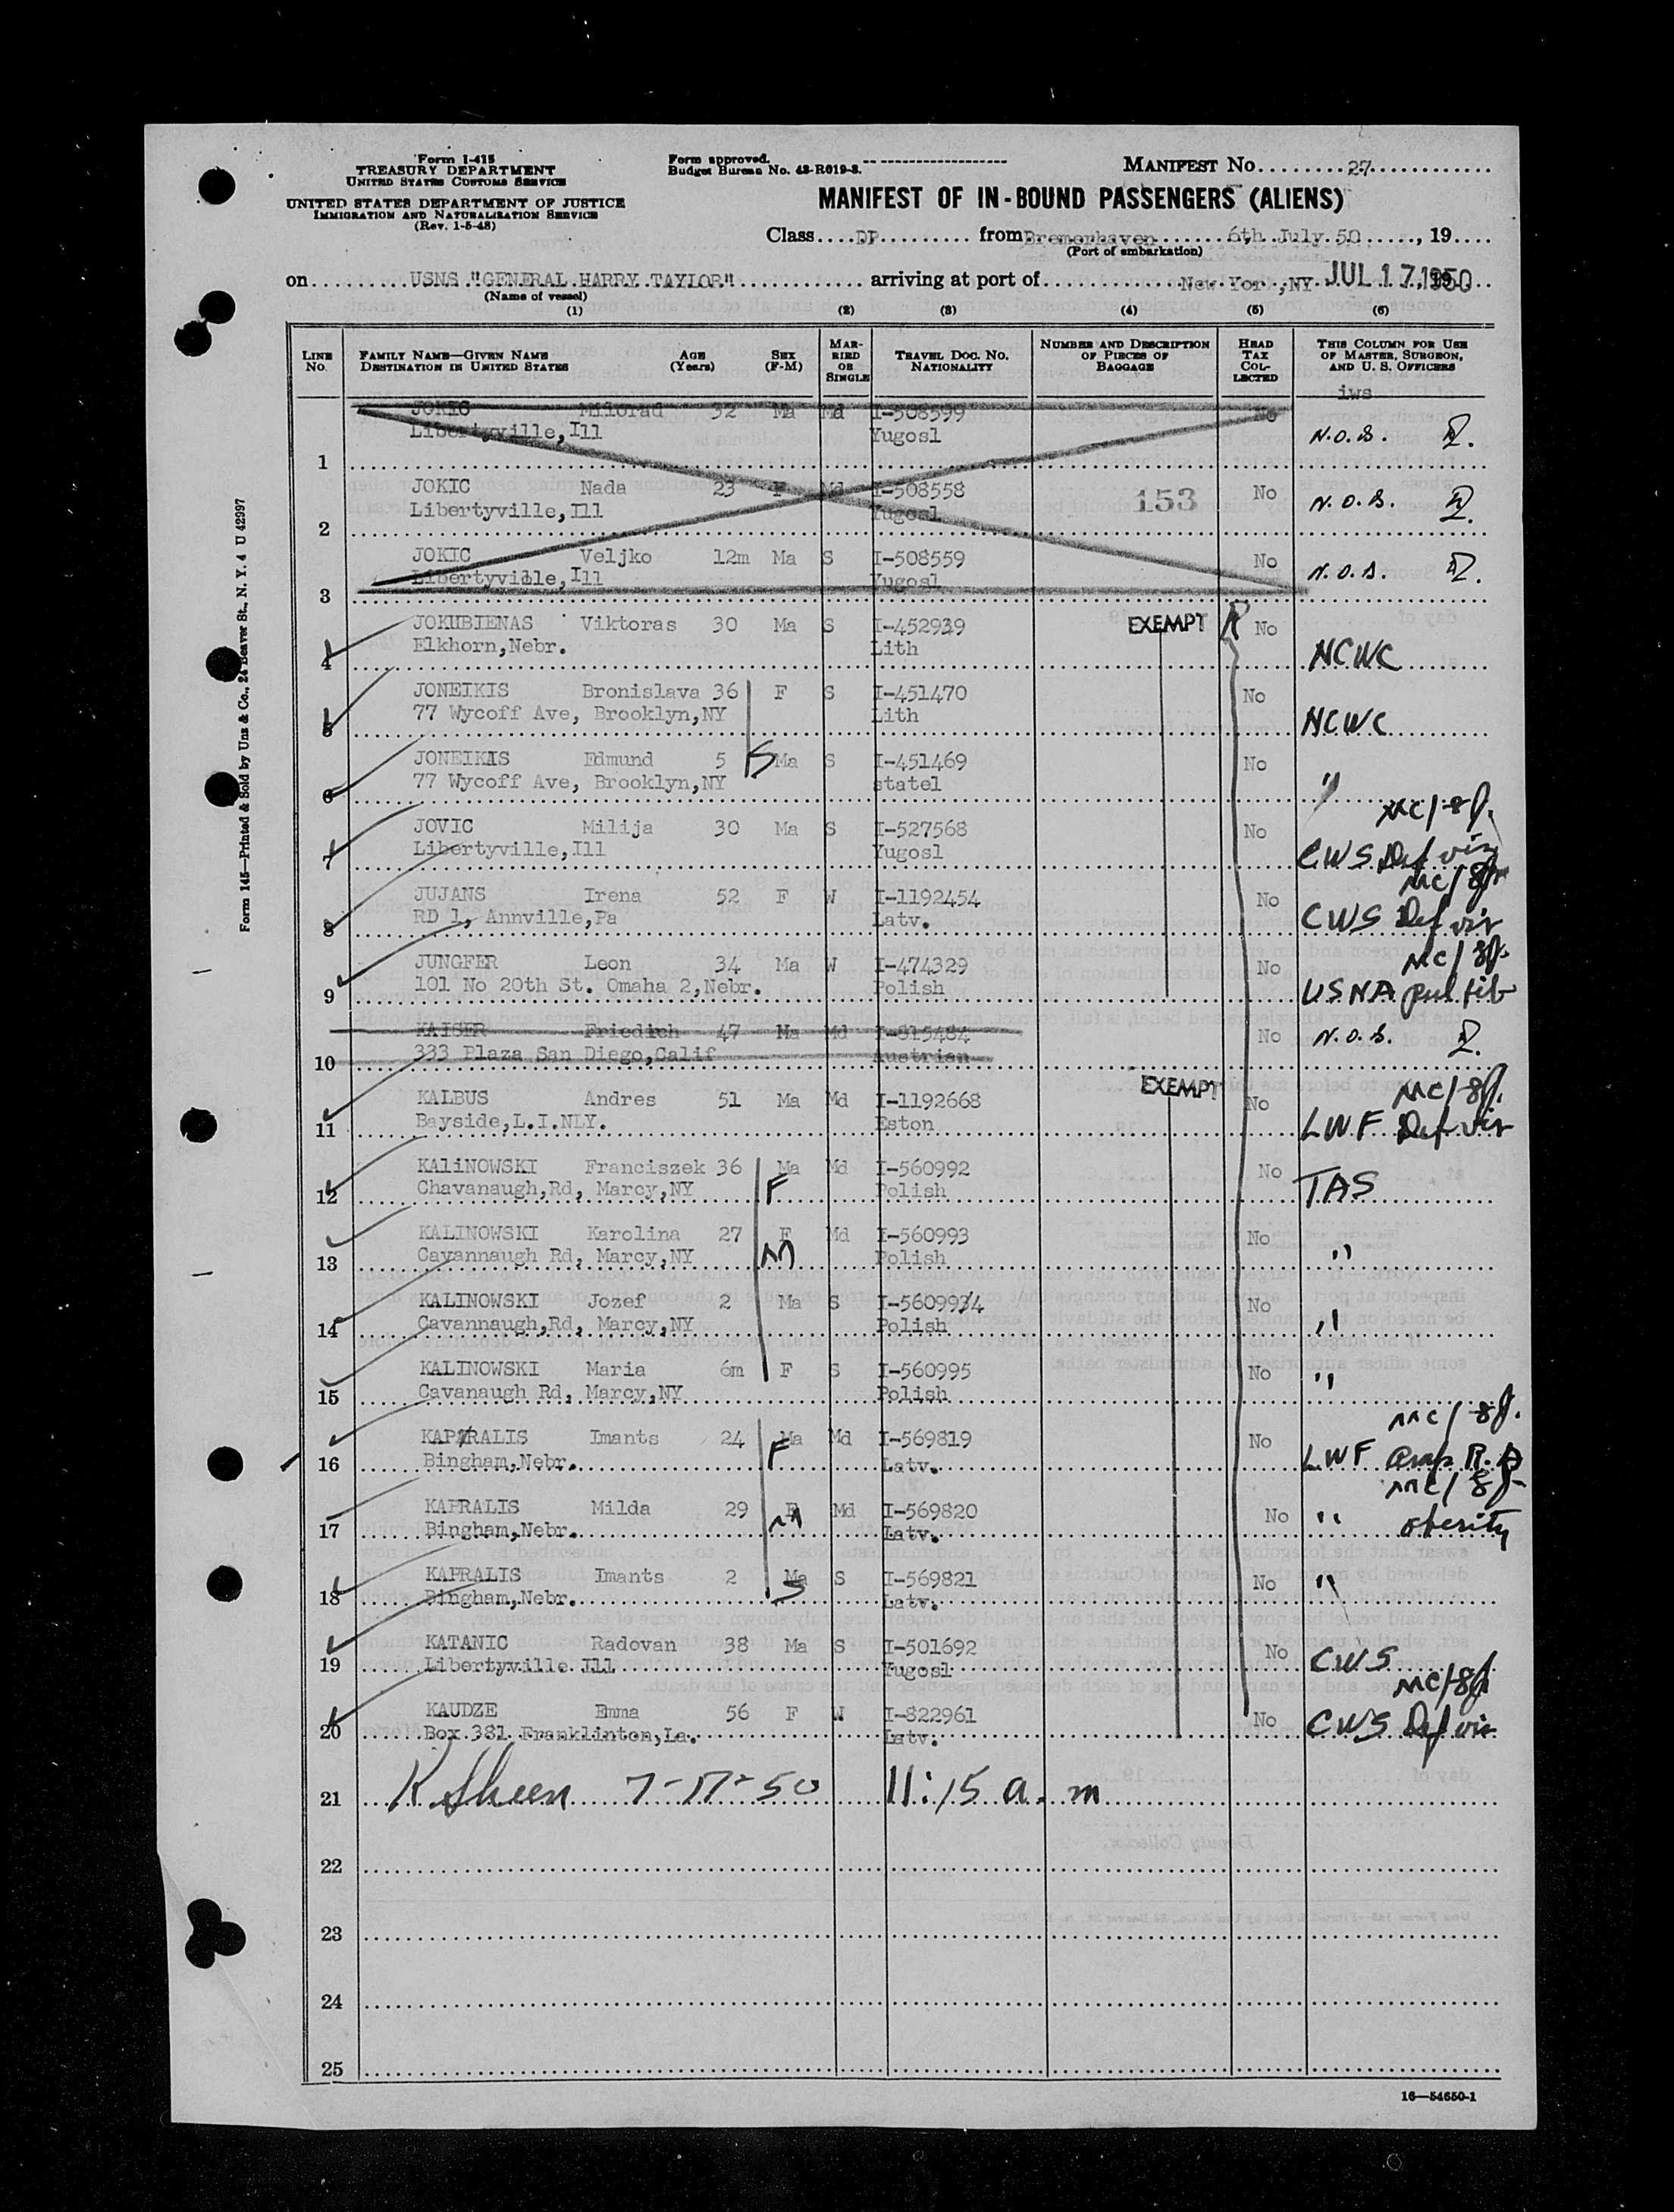 Form I-415
TREASURY DEPARTMENT
UNITED STATES CUSTOMS SERVICE
UNITED STATES DEPARTMENT OF JUSTICE
IMMIGRATION AND NATURALIZATION SERVICE
(Rev. 1-5-48)
Form approved.
Budget Bureau No. 43-R019-3.
MANIFEST No. 27
MANIFEST OF IN-BOUND PASSENGERS (ALIENS)
Class DP from Bremerhaven 6th July 50, 19
(Port of embarkation)
on USNS "GENERAL HARRY TAYLOR" arriving at port of New Yor ,NY JUL 17 1950
(Name of vessel)
(1) (2) (3) (4) (5) (6)
LINE No. FAMILY NAME—GIVEN NAME DESTINATION IN UNITED STATES AGE (Years) SEX (F-M) MARRIED OR SINGLE TRAVEL DOC. NO. NATIONALITY NUMBER AND DESCRIPTION OF PIECES OF BAGGAGE HEAD TAX COLLECTED THIS COLUMN FOR USE OF MASTER, SURGEON, AND U. S. OFFICERS
iws
JOKIC Milorad 32 Ma Md I-508599 No
1 Libertyville,Ill Yugosl N.O.B.
JOKIC Nada 23 F Md I-508558 153 No
2 Libertyville,Ill Yugosl N.O.B.
JOKIC Veljko 12m Ma S I-508559 No
3 Libertyville,Ill Yugosl N.O.B.
JOKUBIENAS Viktoras 30 Ma S I-452939 EXEMPT No
4 Elkhorn,Nebr. Lith NCWC
JONEIKIS Bronislava 36 F S I-451470 No
5 77 Wycoff Ave, Brooklyn,NY Lith NCWC
JONEIKIS Edmund 5 S Ma S I-451469 No
6 77 Wycoff Ave, Brooklyn,NY statel "
JOVIC Milija 30 Ma S I-527568 No MC/
7 Libertyville,Ill Yugosl CWS Def vis
JUJANS Irena 52 F W I-1192454 No MC/
8 RD 1, Annville,Pa Latv. CWS Def vis
JUNGFER Leon 34 Ma W I-474329 No MC/
9 101 No 20th St. Omaha 2,Nebr. Polish USNA pul fib
KAISER Friedrich 47 Ma Md I-315484 No N.O.B.
10 333 Plaza San Diego,Calif Austrian
KALBUS Andres 51 Ma Md I-1192668 EXEMPT No MC/
11 Bayside,L.I.NLY. Eston LWF Def vis
KALiNOWSKI Franciszek 36 Ma Md I-560992 No
12 Chavanaugh,Rd, Marcy,NY F Polish TAS
KALINOWSKI Karolina 27 F Md I-560993 No
13 Cavannaugh Rd, Marcy,NY M Polish "
KALINOWSKI Jozef 2 Ma S I-560994 No
14 Cavannaugh,Rd, Marcy,NY Polish "
KALINOWSKI Maria 6m F S I-560995 No
15 Cavanaugh Rd, Marcy,NY Polish "
KAPRALIS Imants 24 Ma Md I-569819 No MC/
16 Bingham,Nebr. F Latv. LWF
KAPRALIS Milda 29 F Md I-569820 No MC/
17 Bingham,Nebr. M Latv. " obesity
KAPRALIS Imants 2 Ma S I-569821 No
18 Bingham,Nebr. S Latv. "
KATANIC Radovan 38 Ma S I-501692 No
19 Libertyville Ill Yugosl CWS
KAUDZE Emma 56 F W I-822961 No MC/
20 Box 381 Franklinton,La. Latv. CWS Def vis
21 K Sheen 7-17-50 11:15 a.m
22
23
24
25
16—54650-1
Form 145—Printed & Sold by Unz & Co., 24 Beaver St., N. Y. 4 U 42997